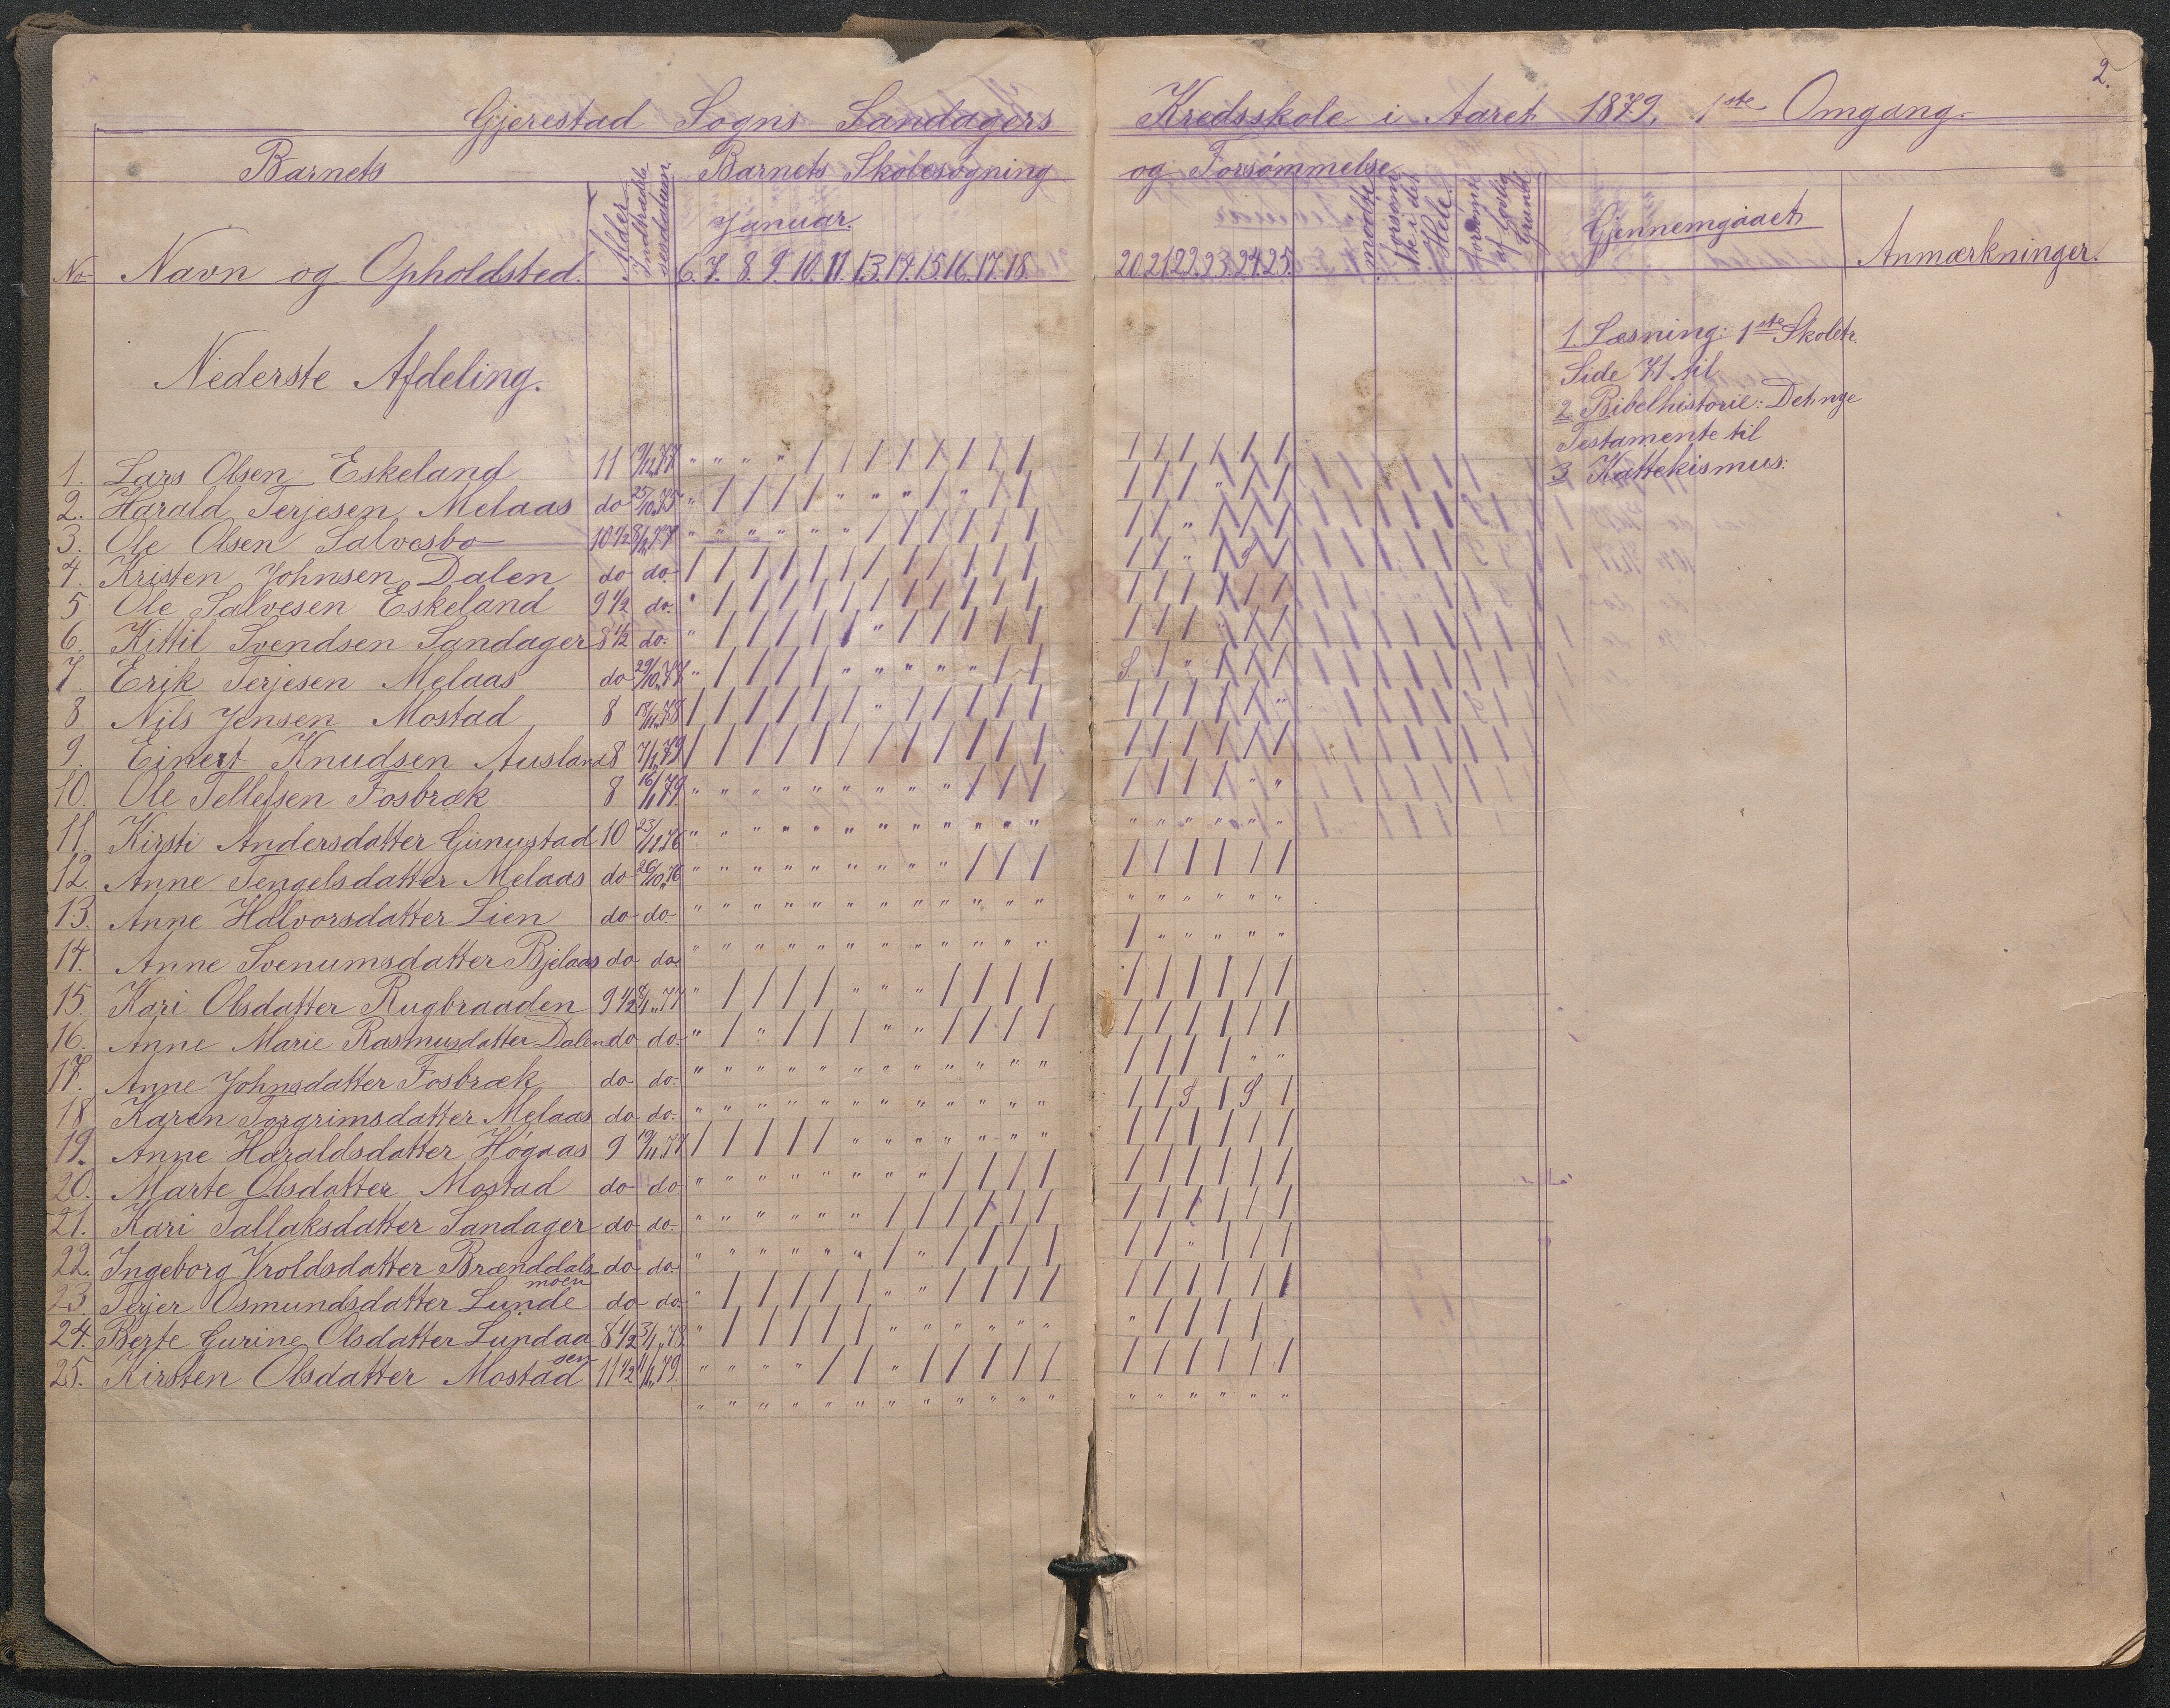 2.
Gjerestad Sogns Sandagers Kredsskole i Aaret 1879. 1ste Omgang.
Barnets
Barnets Skolesøgning og Forsømmelse
No
Navn og Opholdsted.
Alder
Indtrædelsesdatum.
Januar.
6. 7. 8. 9. 10. 11. 13. 14. 15. 16. 17. 18.
20. 21. 22. 23. 24. 25.
mødte
forsømte i det Hele.
forsømt af Gyldig Grund
Gjennemgaaet
Anmærkninger.
Nederste Afdeling.
1. Læsning: 1ste Skoletr.
Side 71 til
2. Bibelhistorie: Det nye
Testamente til
3 Kattekismus:
1. Lars Olsen Eskeland 11
2. Harald Terjesen Melaas do 25/10 75
3. Ole Olsen Salvesbo 10 1/2
4. Kristen Johnsen Dalen do do.
5 Ole Salvesen Eskeland 9 1/2 do.
6. Kittil Svendsen Sandager 8 1/2 do.
7. Erik Terjesen Melaas do 29/10 77
8. Nils Jensen Mostad 8 18/11 78
9. Einert Knudsen Ausland 8 7/1 79
10. Ole Tellefsen Fosbræk 8 16/1 79.
11. Kirsti Andersdatter 10 23/11 76
12. Anne Tengelsdatter Melaas do 26/10 76
13. Anne Halvorsdatter Lien do do.
14. Anne Svenumsdatter Bjelaas do do.
15. Kari Olsdatter Rugbraaden 9 1/2 8/1 77
16. Anne Marie Rasmusdatter Dalen do do.
17. Anne Johnsdatter Fosbræk do do.
18 Karen Torgrimsdatter Melaas do do.
19. Anne Haraldsdatter Høgaas 9 19/11 77
20. Marte Olsdatter Mostad do do
21. Kari Tallaksdatter Sandager do do.
22. Ingeborg Vroldsdatter Brænddalsmoen do do
23. Terjer Osmundsdatter Lunde do do.
24. Berte Gurine Olsdatter Lundaasen 8 1/2 3/1 78.
25. Kirsten Olsdatter Mostad 11 1/2 11/1 79.